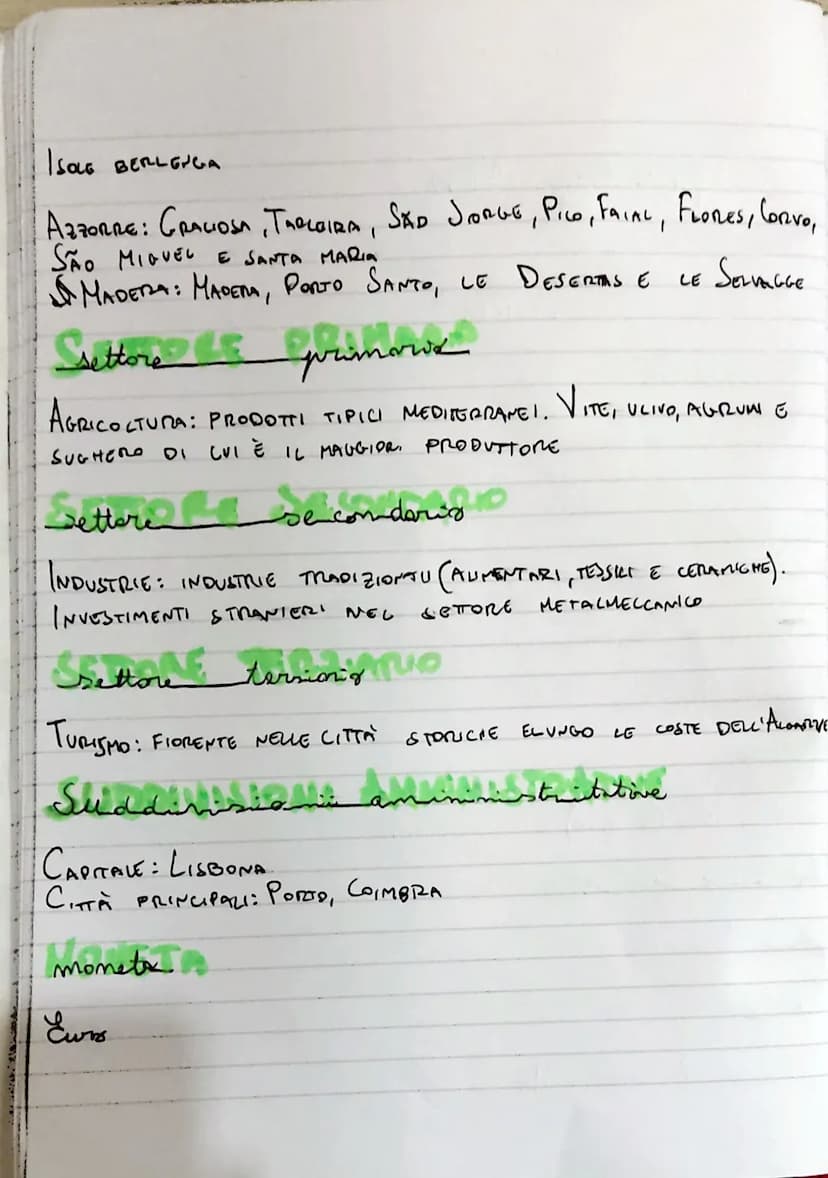 Isole Berlenga
Azzorre: Graciosa, Terceira, São Jorge, Pico, Faial, Flores, Corvo,
São Miguel e Santa Maria
Madera: Madera, Porto Santo, le Desertas e le Selvagge
Settore primario
Agricoltura: prodotti tipici mediterranei. Vite, ulivo, agrumi e
sughero di cui è il maggior produttore
Settore secondario
Industrie: industrie tradizionali (alimentari, tessili e ceramiche).
Investimenti stranieri nel settore metalmeccanico
Settore terziario
Turismo: fiorente nelle città storiche e lungo le coste dell'Algarve
Suddivisioni amministrative
Capitale: Lisbona
Città principali: Porto, Coimbra
Moneta
Euro